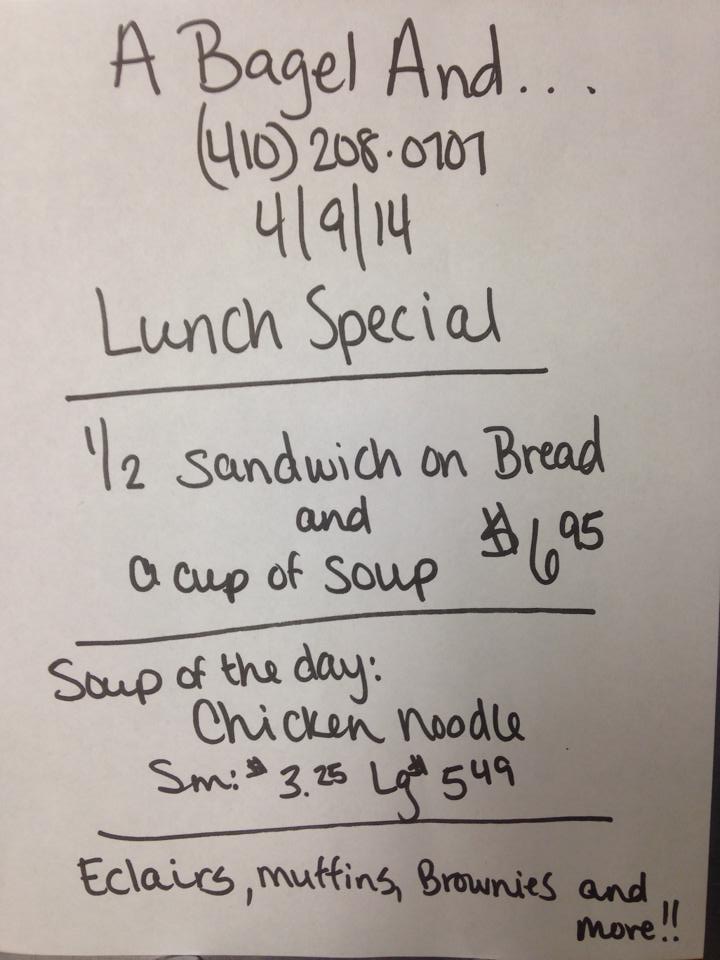 A Bagel And...
(410) 208.0707
4/9/14
Lunch Special
1/2 sandwich on Bread
and
a cup of soup $6.95
Soup of the day:
Chicken noodle
Sm: $3.25 Lg $5.49
Eclairs, muffins, Brownies and
more!!